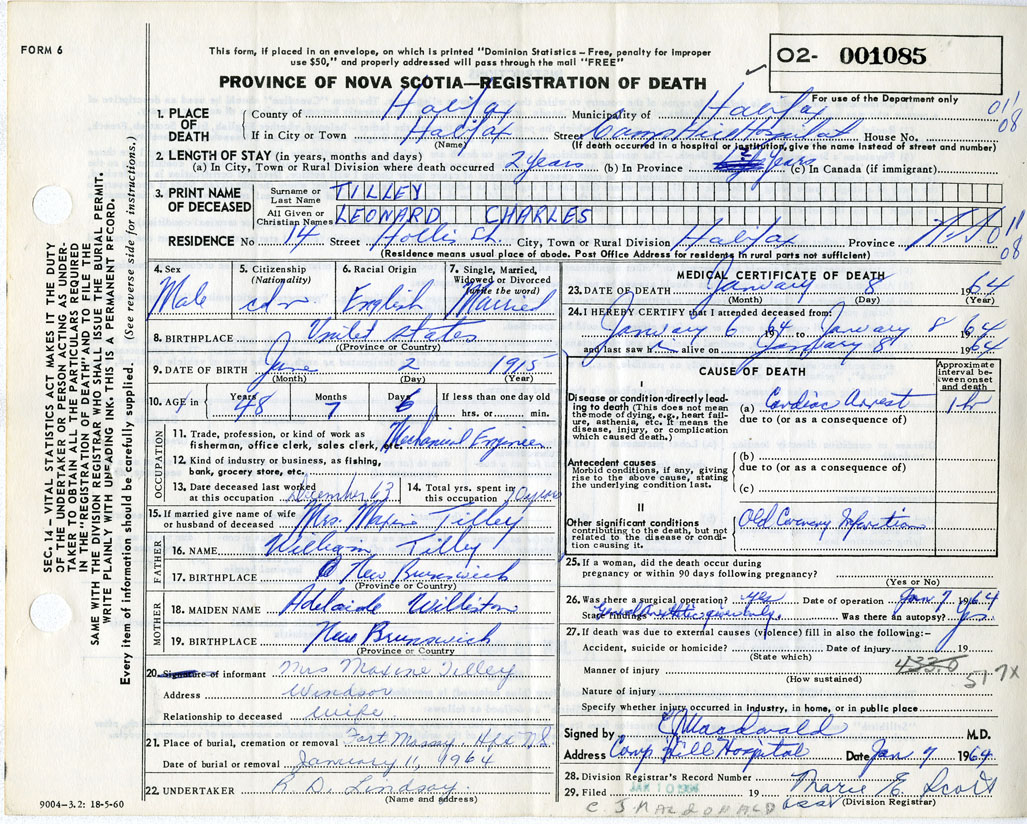 FORM 6
This form, if placed in an envelope, on which is printed "Dominion Statistics – Free, penalty for improper
use $50," and properly addressed will pass through the mail "FREE"
PROVINCE OF NOVA SCOTIA—REGISTRATION OF DEATH
O2- 001085
For use of the Department only
011
08
1. PLACE OF DEATH
County of Halifax Municipality of Halifax
If in City or Town Halifax Street Camp Hill Hospital House No.
(Name) (If death occurred in a hospital or institution, give the name instead of street and number)
2. LENGTH OF STAY (in years, months and days)
(a) In City, Town or Rural Division where death occurred 2 years (b) In Province years (c) In Canada (if immigrant)
3. PRINT NAME OF DECEASED
Surname or Last Name TILLEY
All Given or Christian Names LEONARD CHARLES
RESIDENCE No 14 Street Hollis St. City, Town or Rural Division Halifax Province N.S.
011
08
(Residence means usual place of abode. Post Office Address for residents in rural parts not sufficient)
4. Sex Male
5. Citizenship (Nationality) cdn
6. Racial Origin English
7. Single, Married, Widowed or Divorced (write the word) Married
8. BIRTHPLACE United States
(Province or Country)
9. DATE OF BIRTH June 2 1915
(Month) (Day) (Year)
10. AGE in Years 48 Months 7 Days 6 If less than one day old hrs. or min.
OCCUPATION
11. Trade, profession, or kind of work as fisherman, office clerk, sales clerk, etc. Mechanical Engineer
12. Kind of industry or business, as fishing, bank, grocery store, etc.
13. Date deceased last worked at this occupation December 63
14. Total yrs. spent in this occupation years
15. If married give name of wife or husband of deceased Mrs. Maxine Tilley
FATHER
16. NAME William Tilley
17. BIRTHPLACE New Brunswick
(Province or Country)
MOTHER
18. MAIDEN NAME Adelaide Williston
19. BIRTHPLACE New Brunswick
(Province or Country)
20. Signature of informant Mrs Maxine Tilley
Address Windsor
Relationship to deceased wife
21. Place of burial, cremation or removal Fort Massey Hfx N.S.
Date of burial or removal January 11, 1964
22. UNDERTAKER R D. Lindsay
(Name and address)
9004–3.2: 18-5-60
MEDICAL CERTIFICATE OF DEATH
23. DATE OF DEATH January 8 1964
(Month) (Day) (Year)
24. I HEREBY CERTIFY that I attended deceased from:
January 6 1964 to January 8 1964
and last saw him alive on January 8 1964
CAUSE OF DEATH
Approximate interval between onset and death
I
Disease or condition directly leading to death (This does not mean the mode of dying, e.g., heart failure, asthenia, etc. It means the disease, injury, or complication which caused death.)
(a) Cardiac Arrest 1 hr
due to (or as a consequence of)
Antecedent causes
Morbid conditions, if any, giving rise to the above cause, stating the underlying condition last.
(b)
due to (or as a consequence of)
(c)
II
Other significant conditions
contributing to the death, but not related to the disease or condition causing it.
Old Coronary Infarction
25. If a woman, did the death occur during pregnancy or within 90 days following pregnancy?
(Yes or No)
26. Was there a surgical operation? Yes Date of operation Jan 7 1964
State findings General anesthetic given only. Was there an autopsy? Yes
27. If death was due to external causes (violence) fill in also the following:–
Accident, suicide or homicide? Date of injury 19
(State which)
4330
517X
Manner of injury
(How sustained)
Nature of injury
Specify whether injury occurred in industry, in home, or in public place
Signed by Macdonald M.D.
Address Camp Hill Hospital Date Jan 9 1964
28. Division Registrar's Record Number
29. Filed JAN 10 1964 19 Marie E. Scott
(Division Registrar)
C. J. MACDONALD
SEC. 14 – VITAL STATISTICS ACT MAKES IT THE DUTY
OF THE UNDERTAKER OR PERSON ACTING AS UNDER-
TAKER TO OBTAIN ALL THE PARTICULARS REQUIRED
IN THE "REGISTRATION OF DEATH" AND TO FILE THE
SAME WITH THE DIVISION REGISTRAR WHO SHALL ISSUE THE BURIAL PERMIT.
WRITE PLAINLY WITH UNFADING INK. THIS IS A PERMANENT RECORD.
Every item of information should be carefully supplied. (See reverse side for instructions.)